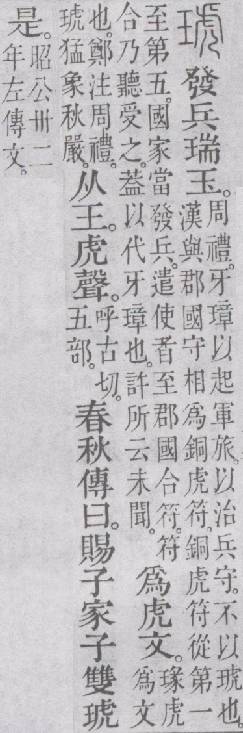 琥 發兵瑞玉。
周禮。牙璋以起軍旅。以治兵守。不以琥也。
漢與郡國守相爲銅虎符。銅虎符從第一
至第五。國家當發兵。遣使者至郡國合符。符
合乃聽受之。葢以代牙璋也。許所云未聞。
爲虎文。
瑑虎
爲文
也。鄭注周禮。
琥猛象秋嚴。
从王。虎聲。
呼古切。
五部。
春秋傳曰。賜子家子雙琥
是。
昭公卅二
年左傳文。